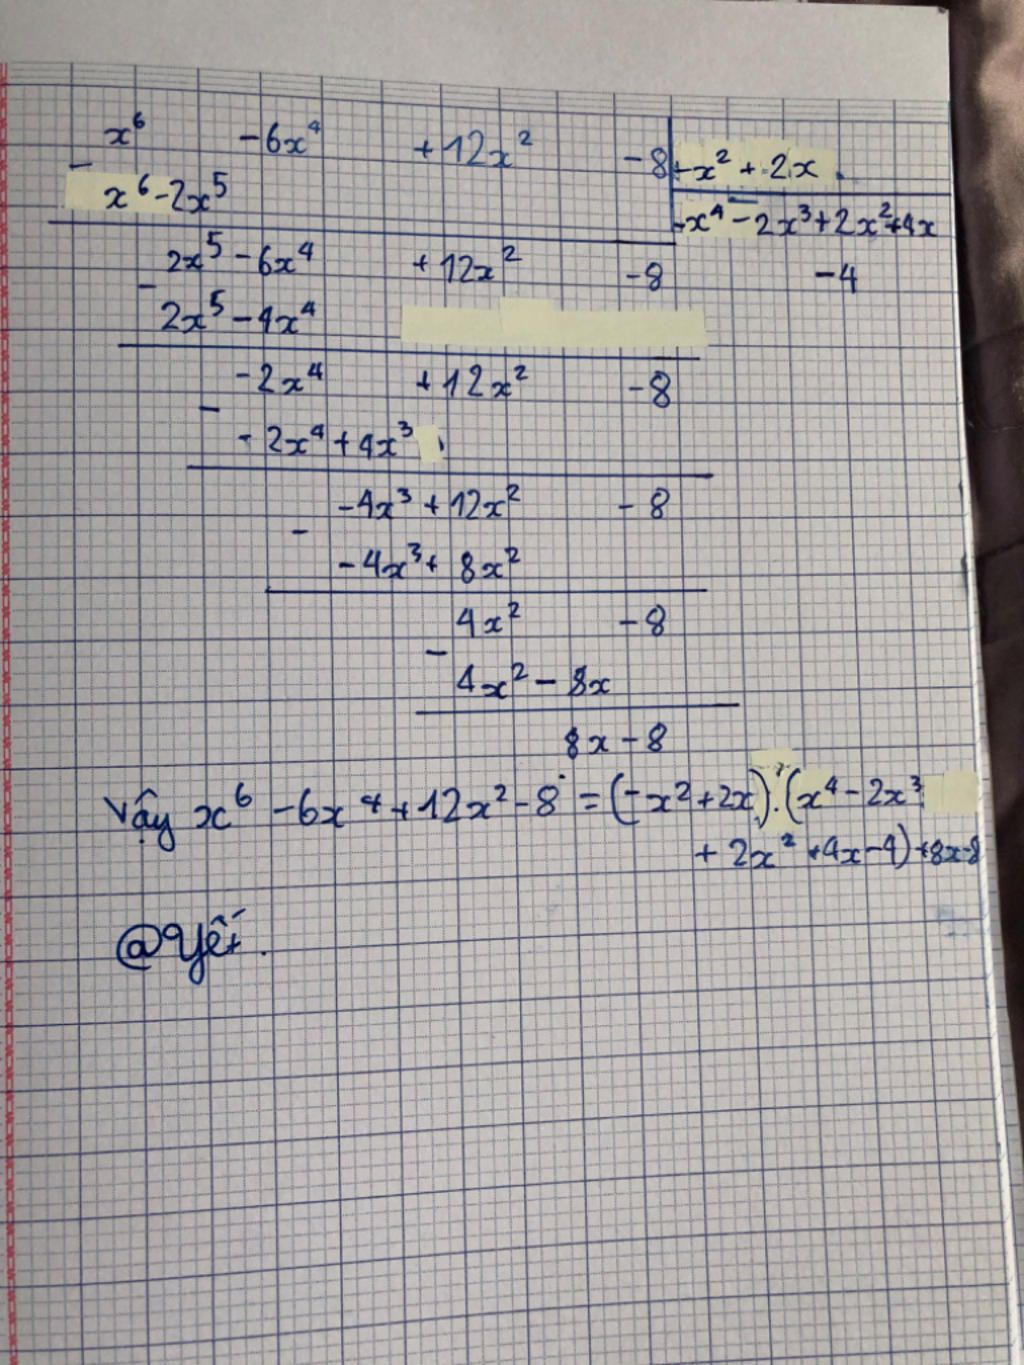 x⁶ -6x⁴ +12x² -8 -x² + 2x
-
x⁶ -2x⁵ -x⁴ - 2x³ + 2x² + 4x
2x⁵ - 6x⁴ +12x² -8 -4
-
2x⁵ - 4x⁴
-2x⁴ +12x² -8
-
- 2x⁴ + 4x³
-4x³ + 12x² - 8
-
-4x³ + 8x²
4x² - 8
-
4x² - 8x
8x - 8
Vậy x⁶ - 6x⁴ + 12x² - 8 = (-x² + 2x).(x⁴ - 2x³
+ 2x² + 4x - 4) + 8x - 8
@Yết.